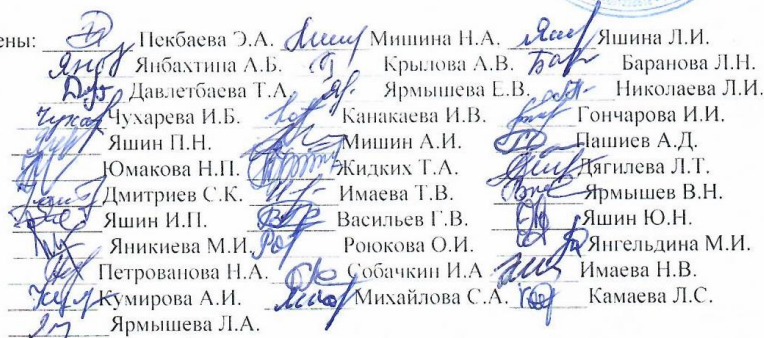 ены: Пекбаева Э.А. Мишина Н.А. Яшина Л.И.
Янбахтина А.Б. Крылова А.В. Баранова Л.Н.
Давлетбаева Т.А. Ярмышева Е.В. Николаева Л.И.
Чухарева И.Б. Канакаева И.В. Гончарова И.И.
Яшин П.Н. Мишин А.И. Пашиев А.Д.
Юмакова Н.П. Жидких Т.А. Дягилева Л.Т.
Дмитриев С.К. Имаева Т.В. Ярмышев В.Н.
Яшин И.П. Васильев Г.В. Яшин Ю.Н.
Яникиева М.И. Роюкова О.И. Янгельдина М.И.
Петрованова Н.А. Собачкин И.А Имаева Н.В.
Кумирова А.И. Михайлова С.А. Камаева Л.С.
Ярмышева Л.А.